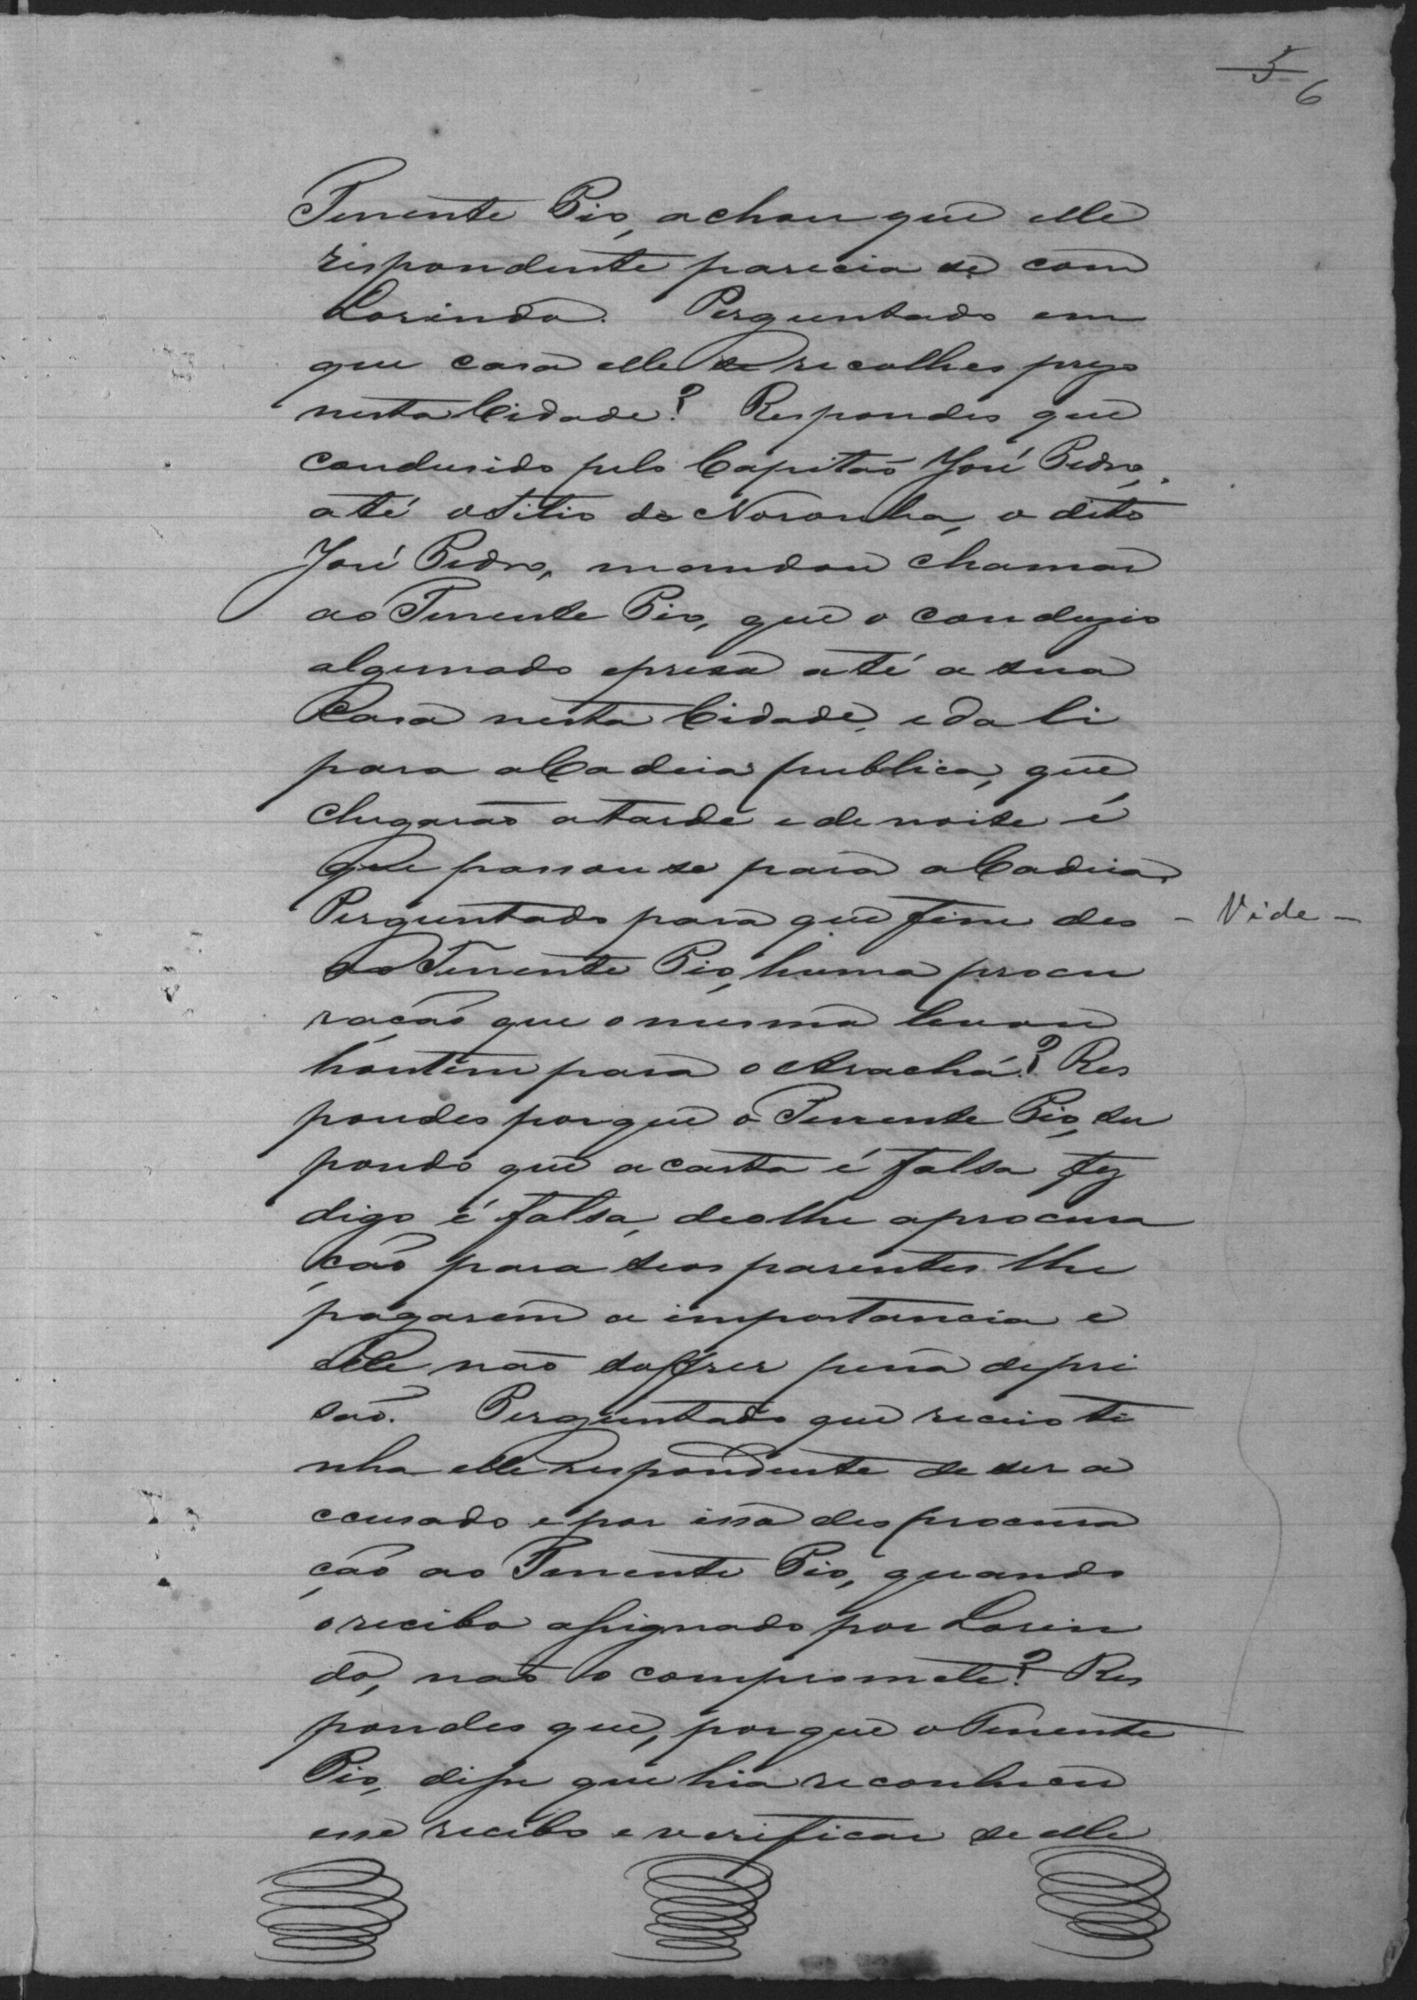 5
6
Tenente Pio, achou que elle
respondente parecia se com
Lorindo. Perguntado em
que casa elle se recolheo prezo
nesta Cidade? Respondeo que
condusido pelo Capitão José Pedro,
até o Sitio do Noronha, o dito
José Pedro, mandou chamar
ao Tenente Pio, que o conduzio
algemado e preso até a sua
Casa nesta Cidade, e da li
para a Cadeia publica, que
chegarão a tarde e de noite é
que passou se para a Cadeia.
Perguntado para que fim deo - Vide -
ao Tenente Pio, huma procu
ração que o mesmo levou
hontem para o Arachá? Res
pondeo porque o Tenente Pio, su
pondo que a carta é falsa fez
digo é falsa, deo lhe a procura
ção para seos parentes lhe
pagarem a importancia e
elle não soffrer pena de pri
são. Perguntado que receio ti
nha elle respondente de ser a
ccusado e por isso deo procura
ção ao Tenente Pio, quando
o recibo assignado por Lorin
do, não o compromete? Res
pondeo que, porque o Tenente
Pio, disse que hia reconhecer
esse recibo e verificar se elle